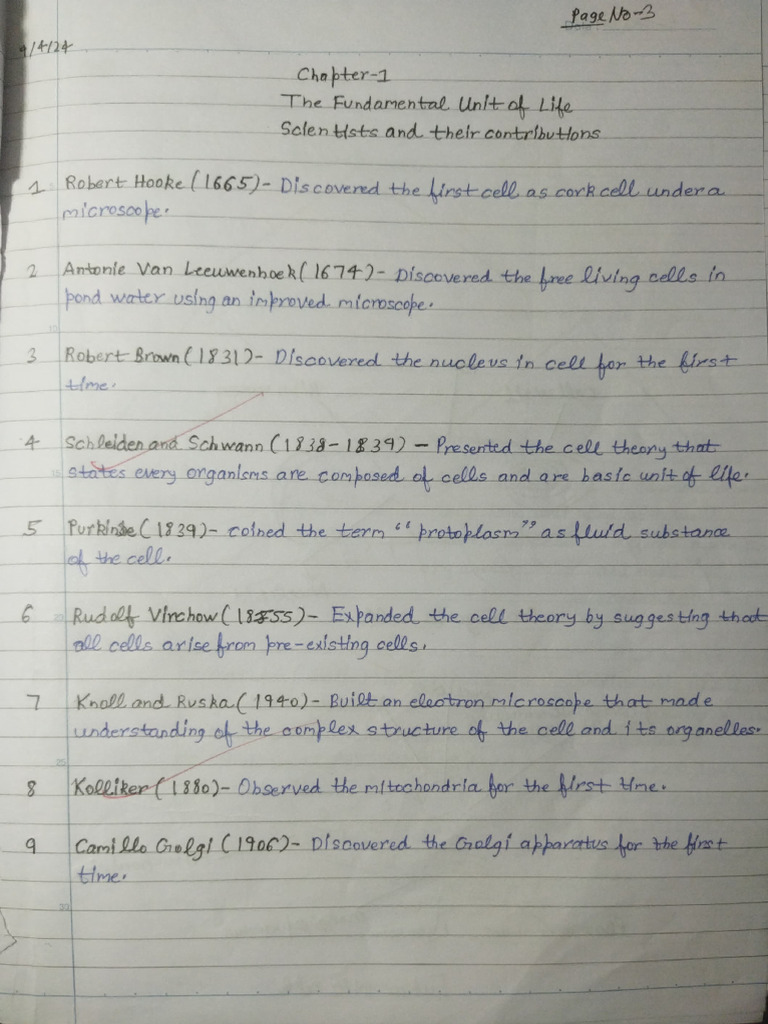 Page No-3
9/4/24
Chapter-1
The Fundamental Unit of Life
Scientists and their contributions
1 Robert Hooke (1665)- Discovered the first cell as cork cell under a
microscope.
2 Antonie Van Leeuwenhoek (1674)- Discovered the free living cells in
pond water using an improved microscope.
3 Robert Brown (1831)- Discovered the nucleus in cell for the first
time.
4 Schleiden and Schwann (1838-1839) - Presented the cell theory that
states every organisms are composed of cells and are basic unit of life.
5 Purkinse (1839)- coined the term "protoplasm" as fluid substance
of the cell.
6 Rudolf Virchow (1855)- Expanded the cell theory by suggesting that
all cells arise from pre-existing cells.
7 Knoll and Ruska (1940)- Built an electron microscope that made
understanding of the complex structure of the cell and its organelles.
8 Kolliker (1880)- Observed the mitochondria for the first time.
9 Camillo Golgi (1906)- Discovered the Golgi apparatus for the first
time.